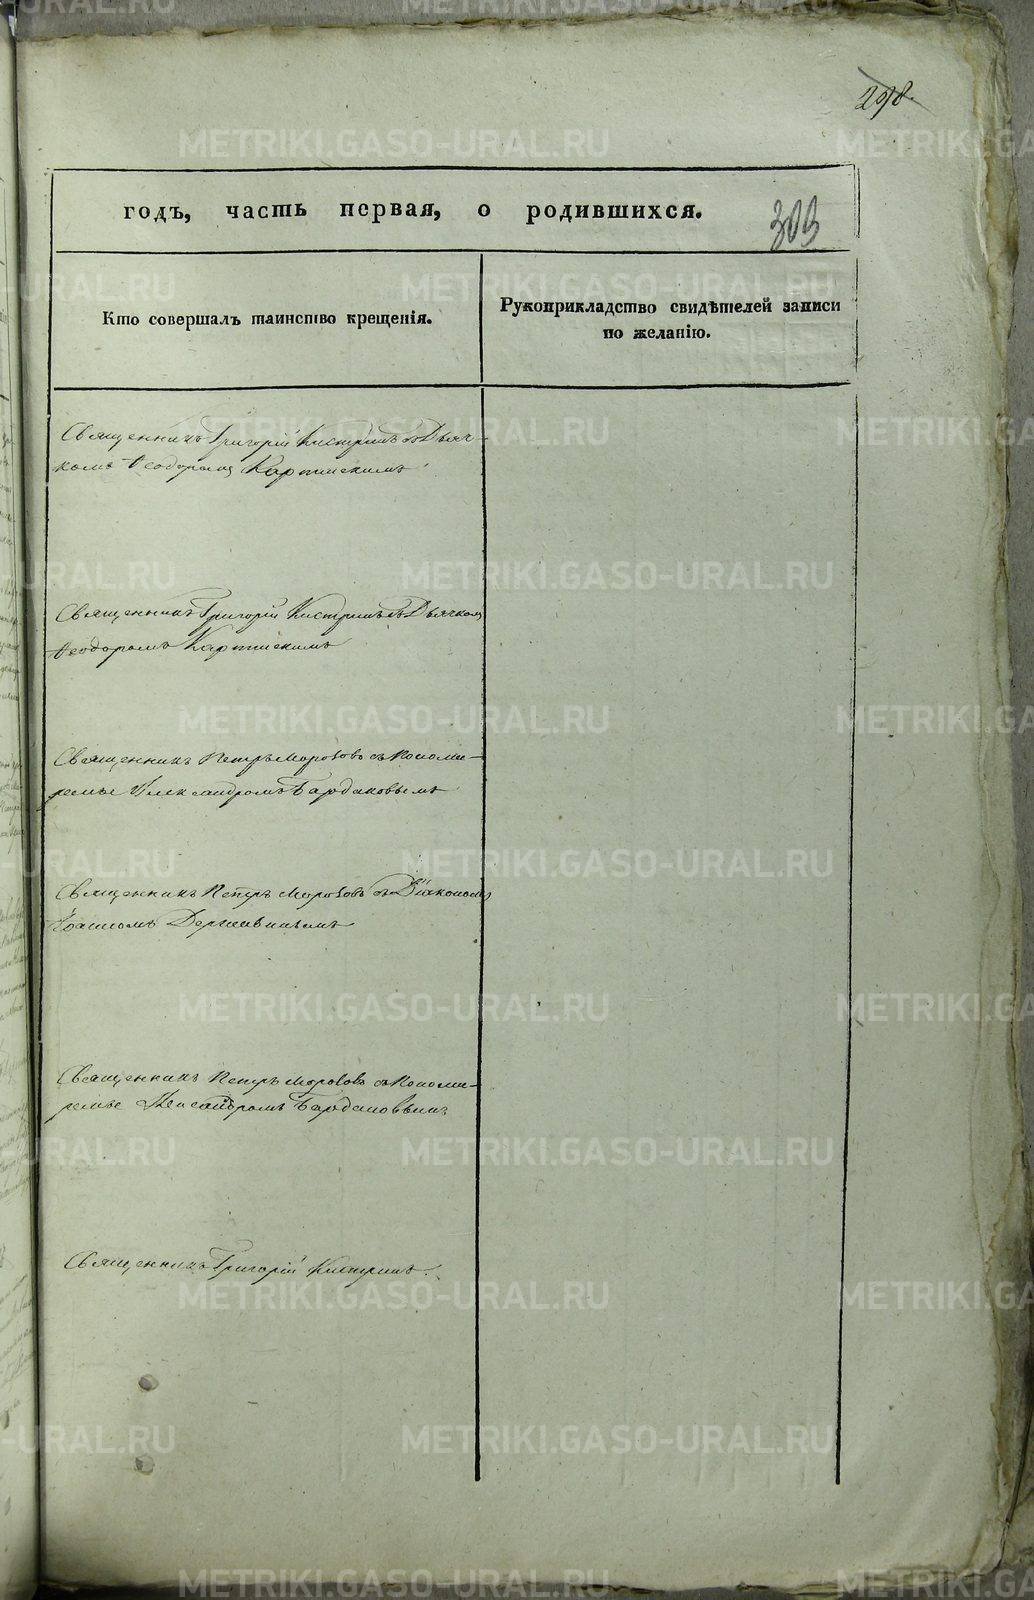 298.
годъ, часть первая, о родившихся.
303
Кто совершалъ таинство крещенія.
Рукоприкладство свидѣтелей записи
по желанію.
Священникъ Григорій съ Дьяч-
комъ Ѳеодоромъ
Священникъ Григорій съ Дьячкомъ
Ѳеодоромъ
Священникъ Петръ Морозовъ съ Поноma-
ремъ Александромъ Бардаковымъ
Священникъ Петръ Морозовъ съ Діакономъ
Іоанномъ Державинымъ
Священникъ Петръ Морозовъ съ Понома-
ремъ Александромъ Бардаковымъ
Священникъ Григорій
METRIKI.GASO-URAL.RU